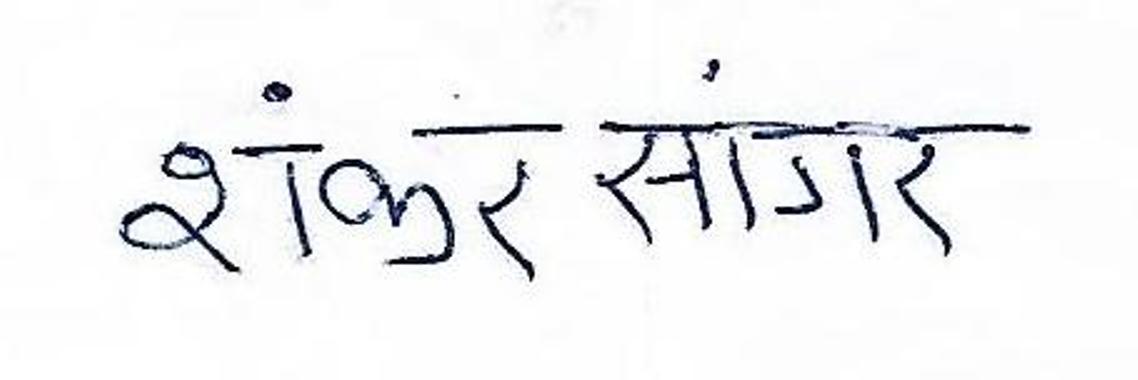 शंकर सांगर